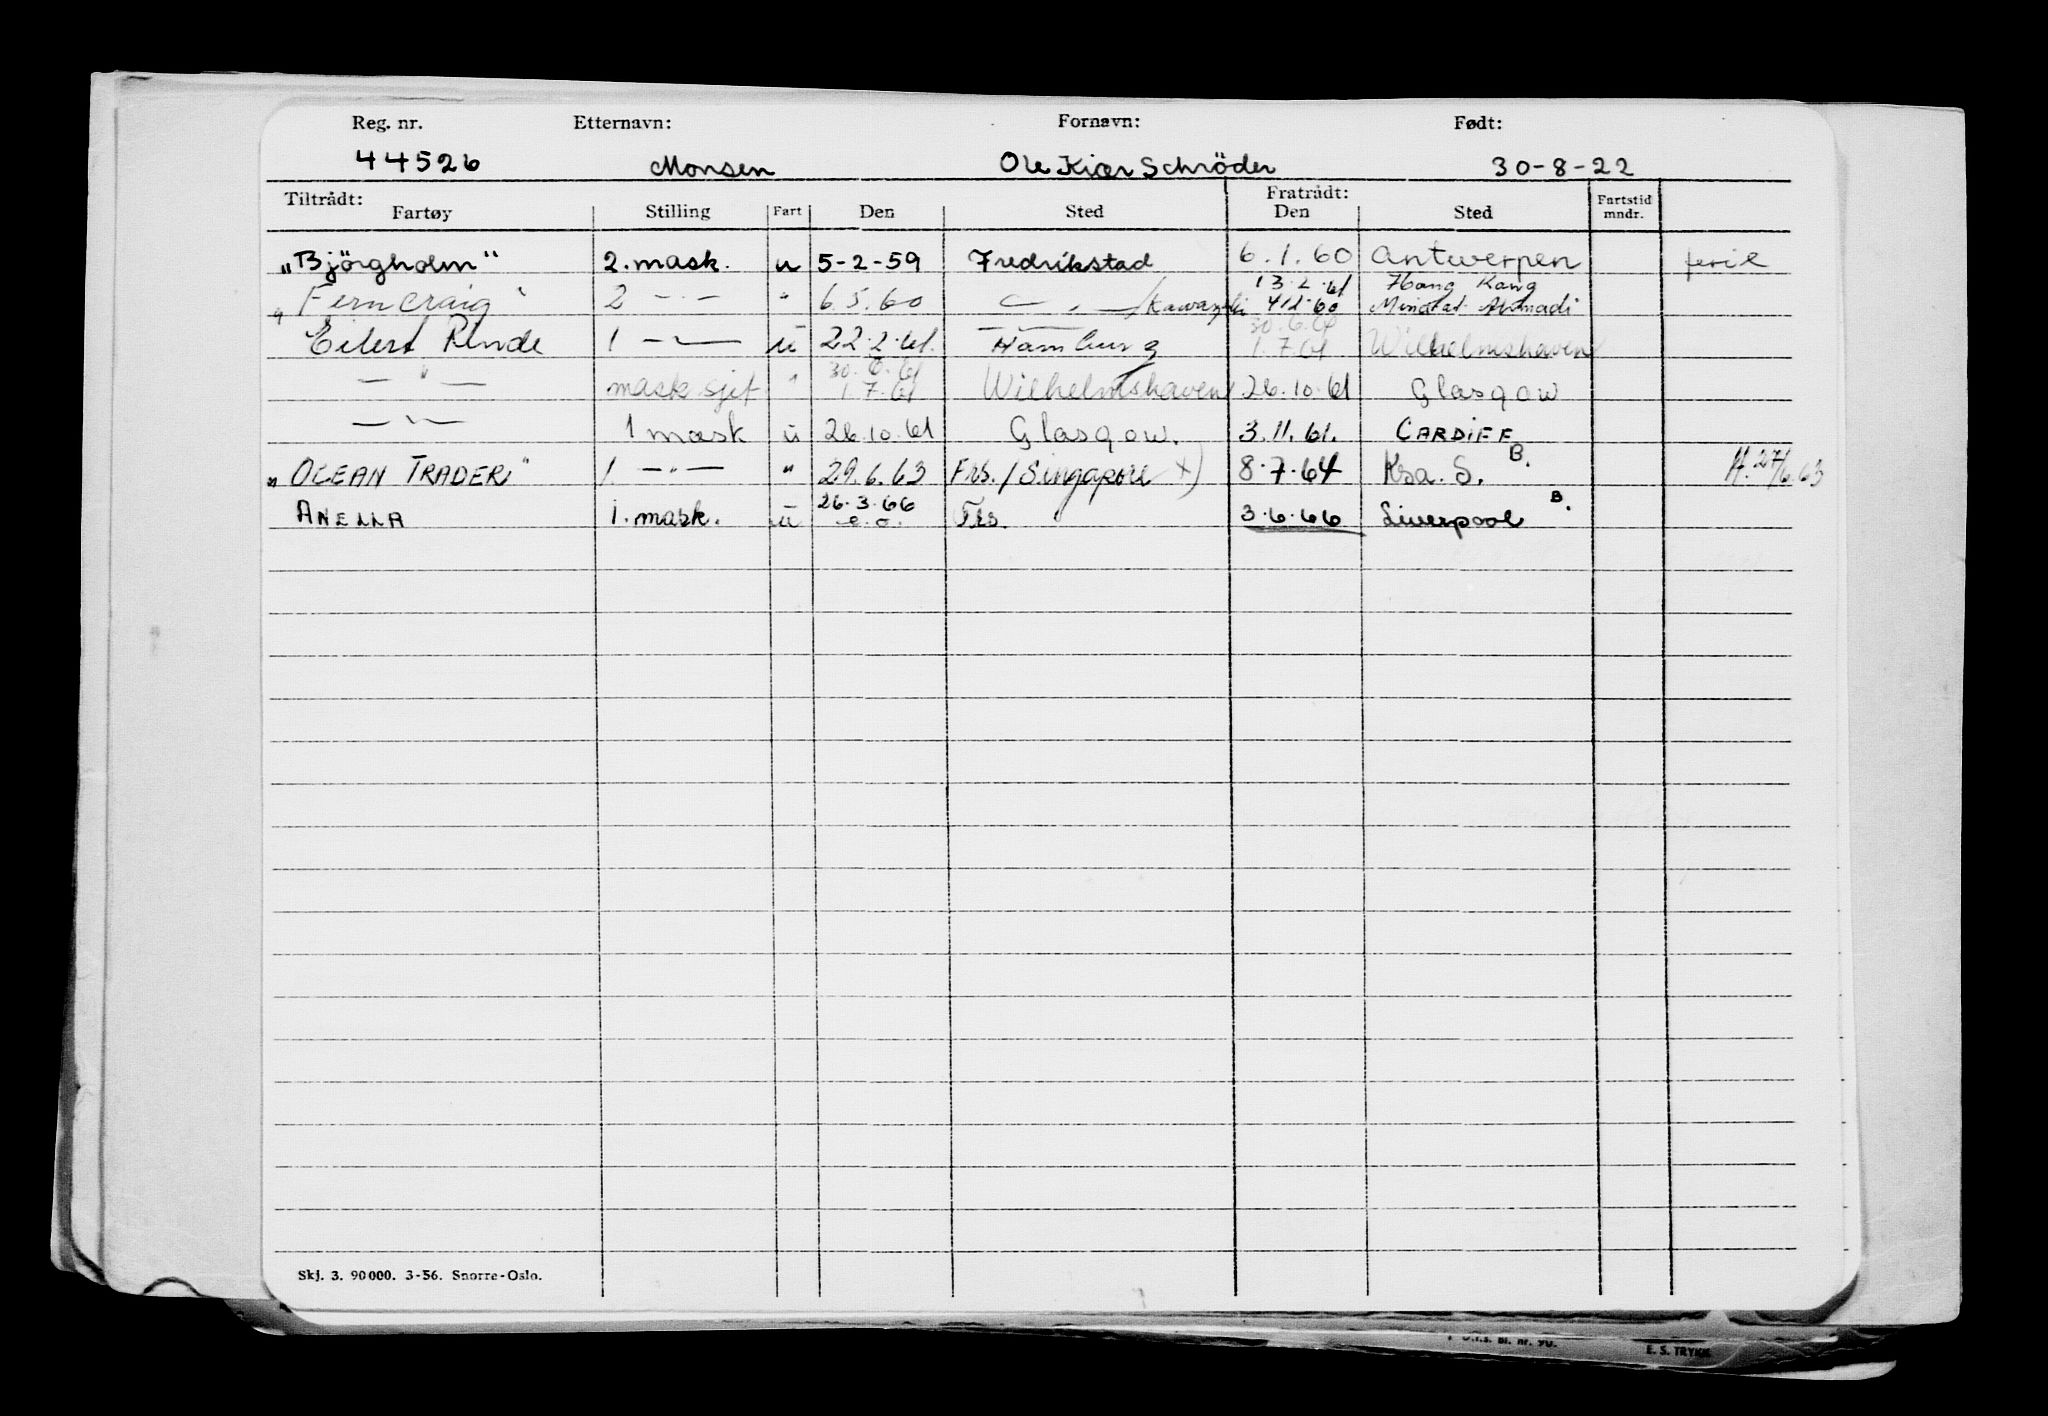 Reg. nr. Etternavn: Fornavn: Født:
44526 Monsen Ole Kiær Schröder 30-8-22
Tiltrådt: Fratrådt:
Fartøy Stilling Fart Den Sted Den Sted Fartstid mndr.
"Björgholm" 2. mask. u 5-2-59 Fredrikstad 6.1.60 Antwerpen ferie
13.2.61 Hong Kong
"Ferncraig" 2 -"- " 6.5.60 -"- / 4/12-60 Mina al Ahmadi
30.6.61
Eilert Rinde 1 -"- u 22.2.61. Hamburg 1.7.61 Wilhelmshaven
30.6.61
-"- mask sjef " 1.7.61 Wilhelmshaven 26.10.61 Glasgow
-"- 1 mask u 26.10.61 Glasgow. 3.11.61. CARDIFF
"OCEAN TRADER" 1 -"- " 29.6.63 Frb. / Singapore x) 8.7.64 Ksa. S. B. 27/6.63
26.3.66
ANELLA 1. mask. u e.o. 3.6.66 Liverpool B.
Skj. 3. 90000. 3-56. Snorre-Oslo.
E. S. TRYKK